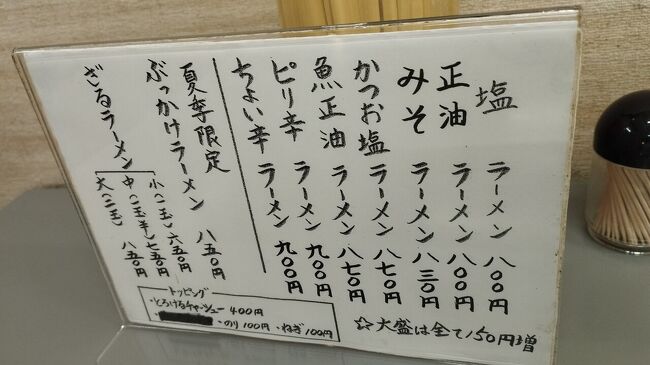 塩ラーメン 八〇〇円
正油ラーメン 八〇〇円
みそラーメン 八三〇円
かつお塩ラーメン 八七〇円
魚正油ラーメン 八七〇円
ピリ辛ラーメン 九〇〇円
ちょい辛ラーメン 九〇〇円
☆大盛は全て150円増
夏季限定
ぶっかけラーメン 八五〇円
ざるラーメン
小(一玉)六五〇円
中(一玉半)七五〇円
大(二玉) 八五〇円
トッピング
・とろけるチャーシュー 400円
・のり 100円 ・ねぎ 100円